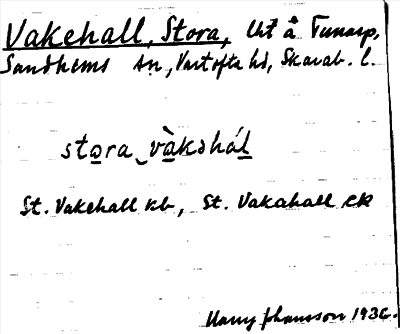 Vakehall, Stora, Ut å Tunarp,
Sandhems sn, Vartofta hd, Skarab. l.
stora vàkəhál
St. Vakehall kb, St. Vakahall ek
Harry Jhansson 1936.